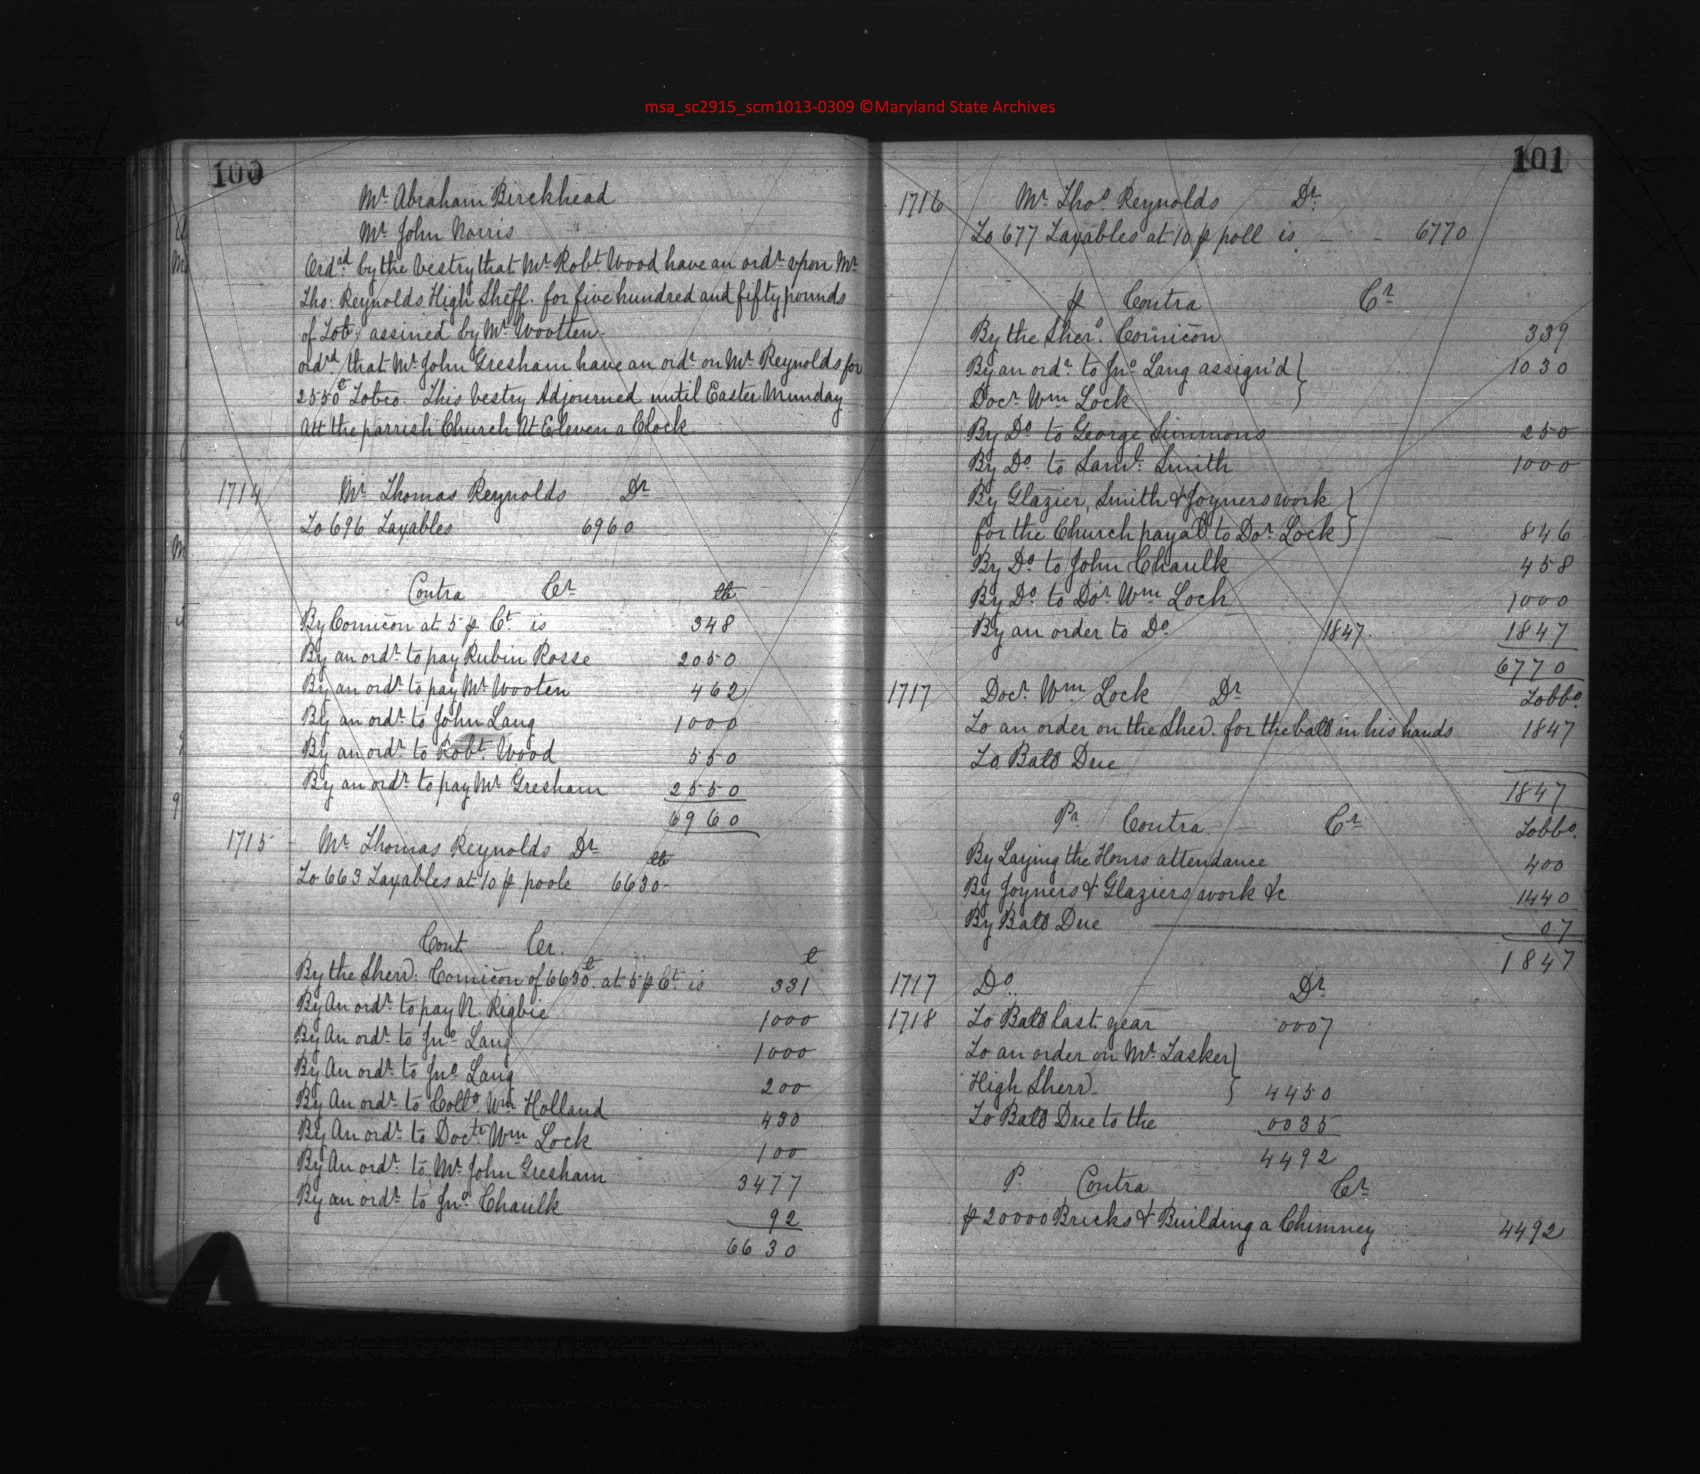 msa_sc2915_scm1013-0309 ©Maryland State Archives
100
Mr Abraham Birckhead
Mr John Norris
Ordrd by the Vestry that Mr Robt Wood have an ordr upon Mr
Tho: Reynolds High Sheff. for five hundred and fifty pounds
of Tob; assined by Mr Wootten.
ordrd that Mr John Gresham have an ordr on Mr Reynolds for
2550 Tobco. This Vestry Adjourned until Easter Munday
att the parrish Church At Eleven a Clock
1714 Mr Thomas Reynolds Dr
To 696 Taxables 6960
Contra Cr lb
By Comicon at 5 ⅌ Ct. is 348
By an ordr to pay Rubin Rosse 2050
By an ordr to pay Mr Wooten 462
By an ordr to John Lang 1000
By an ordr to Robt Wood 550
By an ordr to pay Mr Gresham 2550
6960
1715 - Mr Thomas Reynolds Dr lb
To 663 Taxables at 10 ⅌ poole 6630-
Cont Cr. lb
By the Sherr: Comicon of 6630 lb. at 5 ⅌ Ct. is 331
By An ordr to pay N. Rigbie 1000
By An ordr to Jno Lang 1000
By An ordr to Jno Lang 200
By An ordr to Collo. Wm Holland 430
By An ordr to Doctr Wm Lock 100
By An ordr to Mr John Gresham 3477
By an ordr to Jno Chaulk 92
6630
101
1716 Mr Thos Reynolds Dr
To 677 Taxables at 10 ⅌ poll is - - 6770
⅌ Contra Cr
By the Sher. Comicon 339
By an ordr to Jno Lang assign'd } 1030
Docr Wm Lock
By Do to George Simmons 250
By Do to Saml: Smith 1000
By Glazier, Smith & Joyners work }
for the Church paya to Dor Lock } - 846
By Do to John Chaulk 458
By Do to Dor Wm Loch 1000
By an order to Do 1847. 1847
6770
1717 Docr Wm Lock Dr Tobbo.
To an order on the Sher. for the ball in his hands 1847
To Ball Due
1847
Pr Contra Cr Tobbo.
By Laying the Hours attendance 400
By Joyners & Glaziers work &c 1440
By Ball Due 07
1847
1717 Do. Dr
1718 To Ball last year 0007
To an order on Mr Tasker }
High Sherr. } 4450
To Ball Due to the 0035
4492
P. Contra Cr
⅌ 20000 Bricks & Building a Chimney 4492